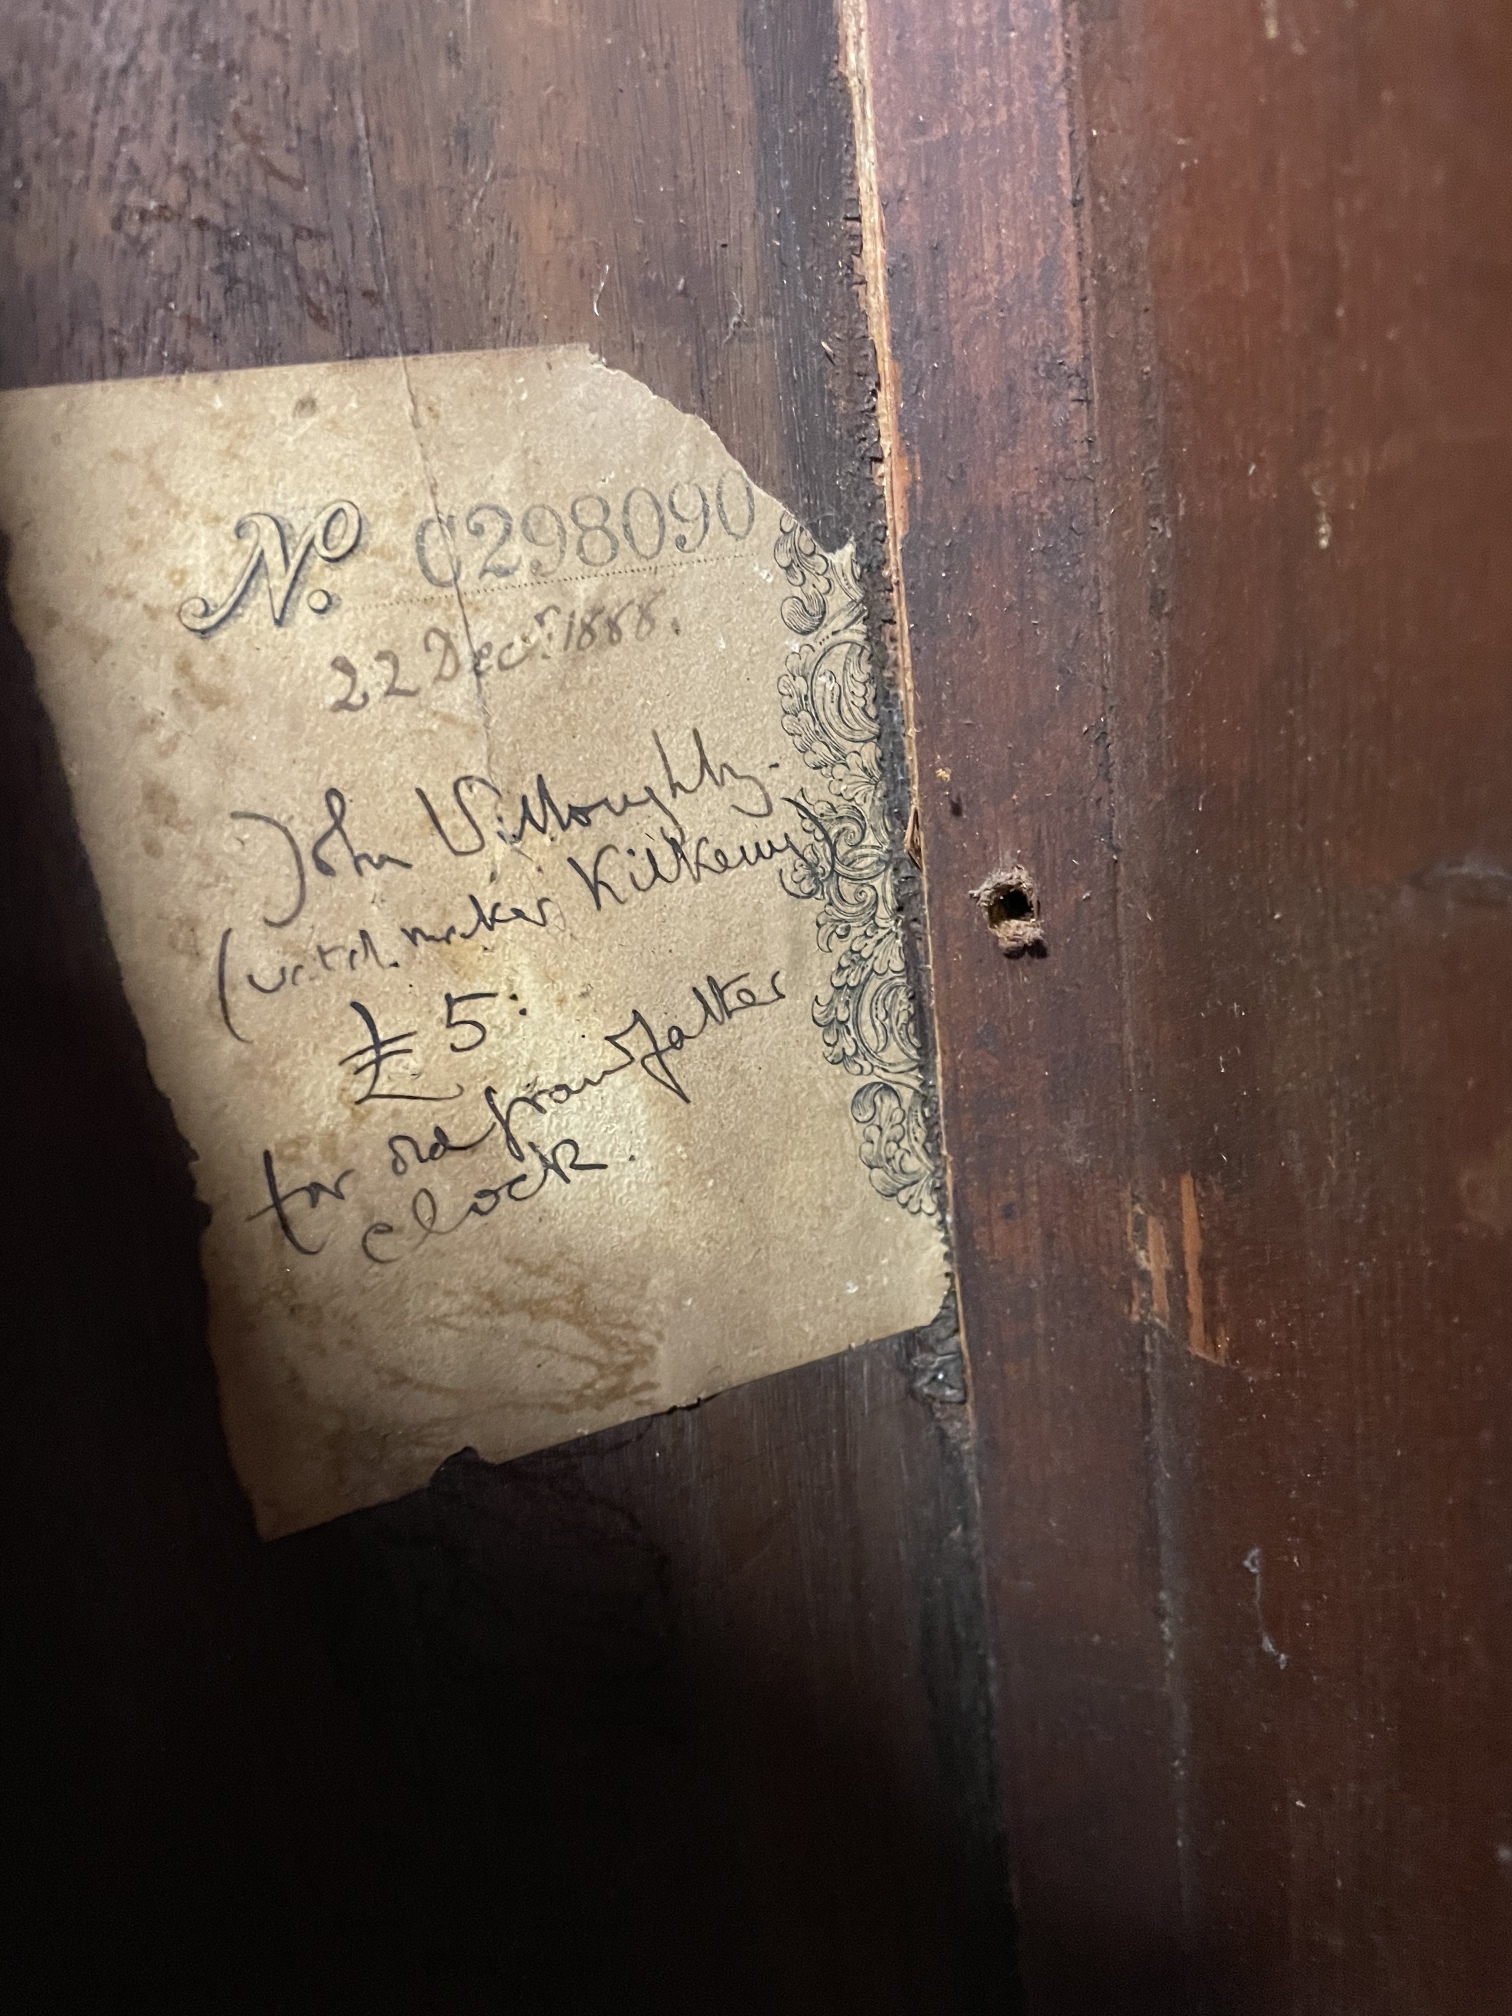 No. C298090
22 Decr. 1888.
John Willoughby.
(watch maker Kilkenny)
£5:
for old grandfather
clock.